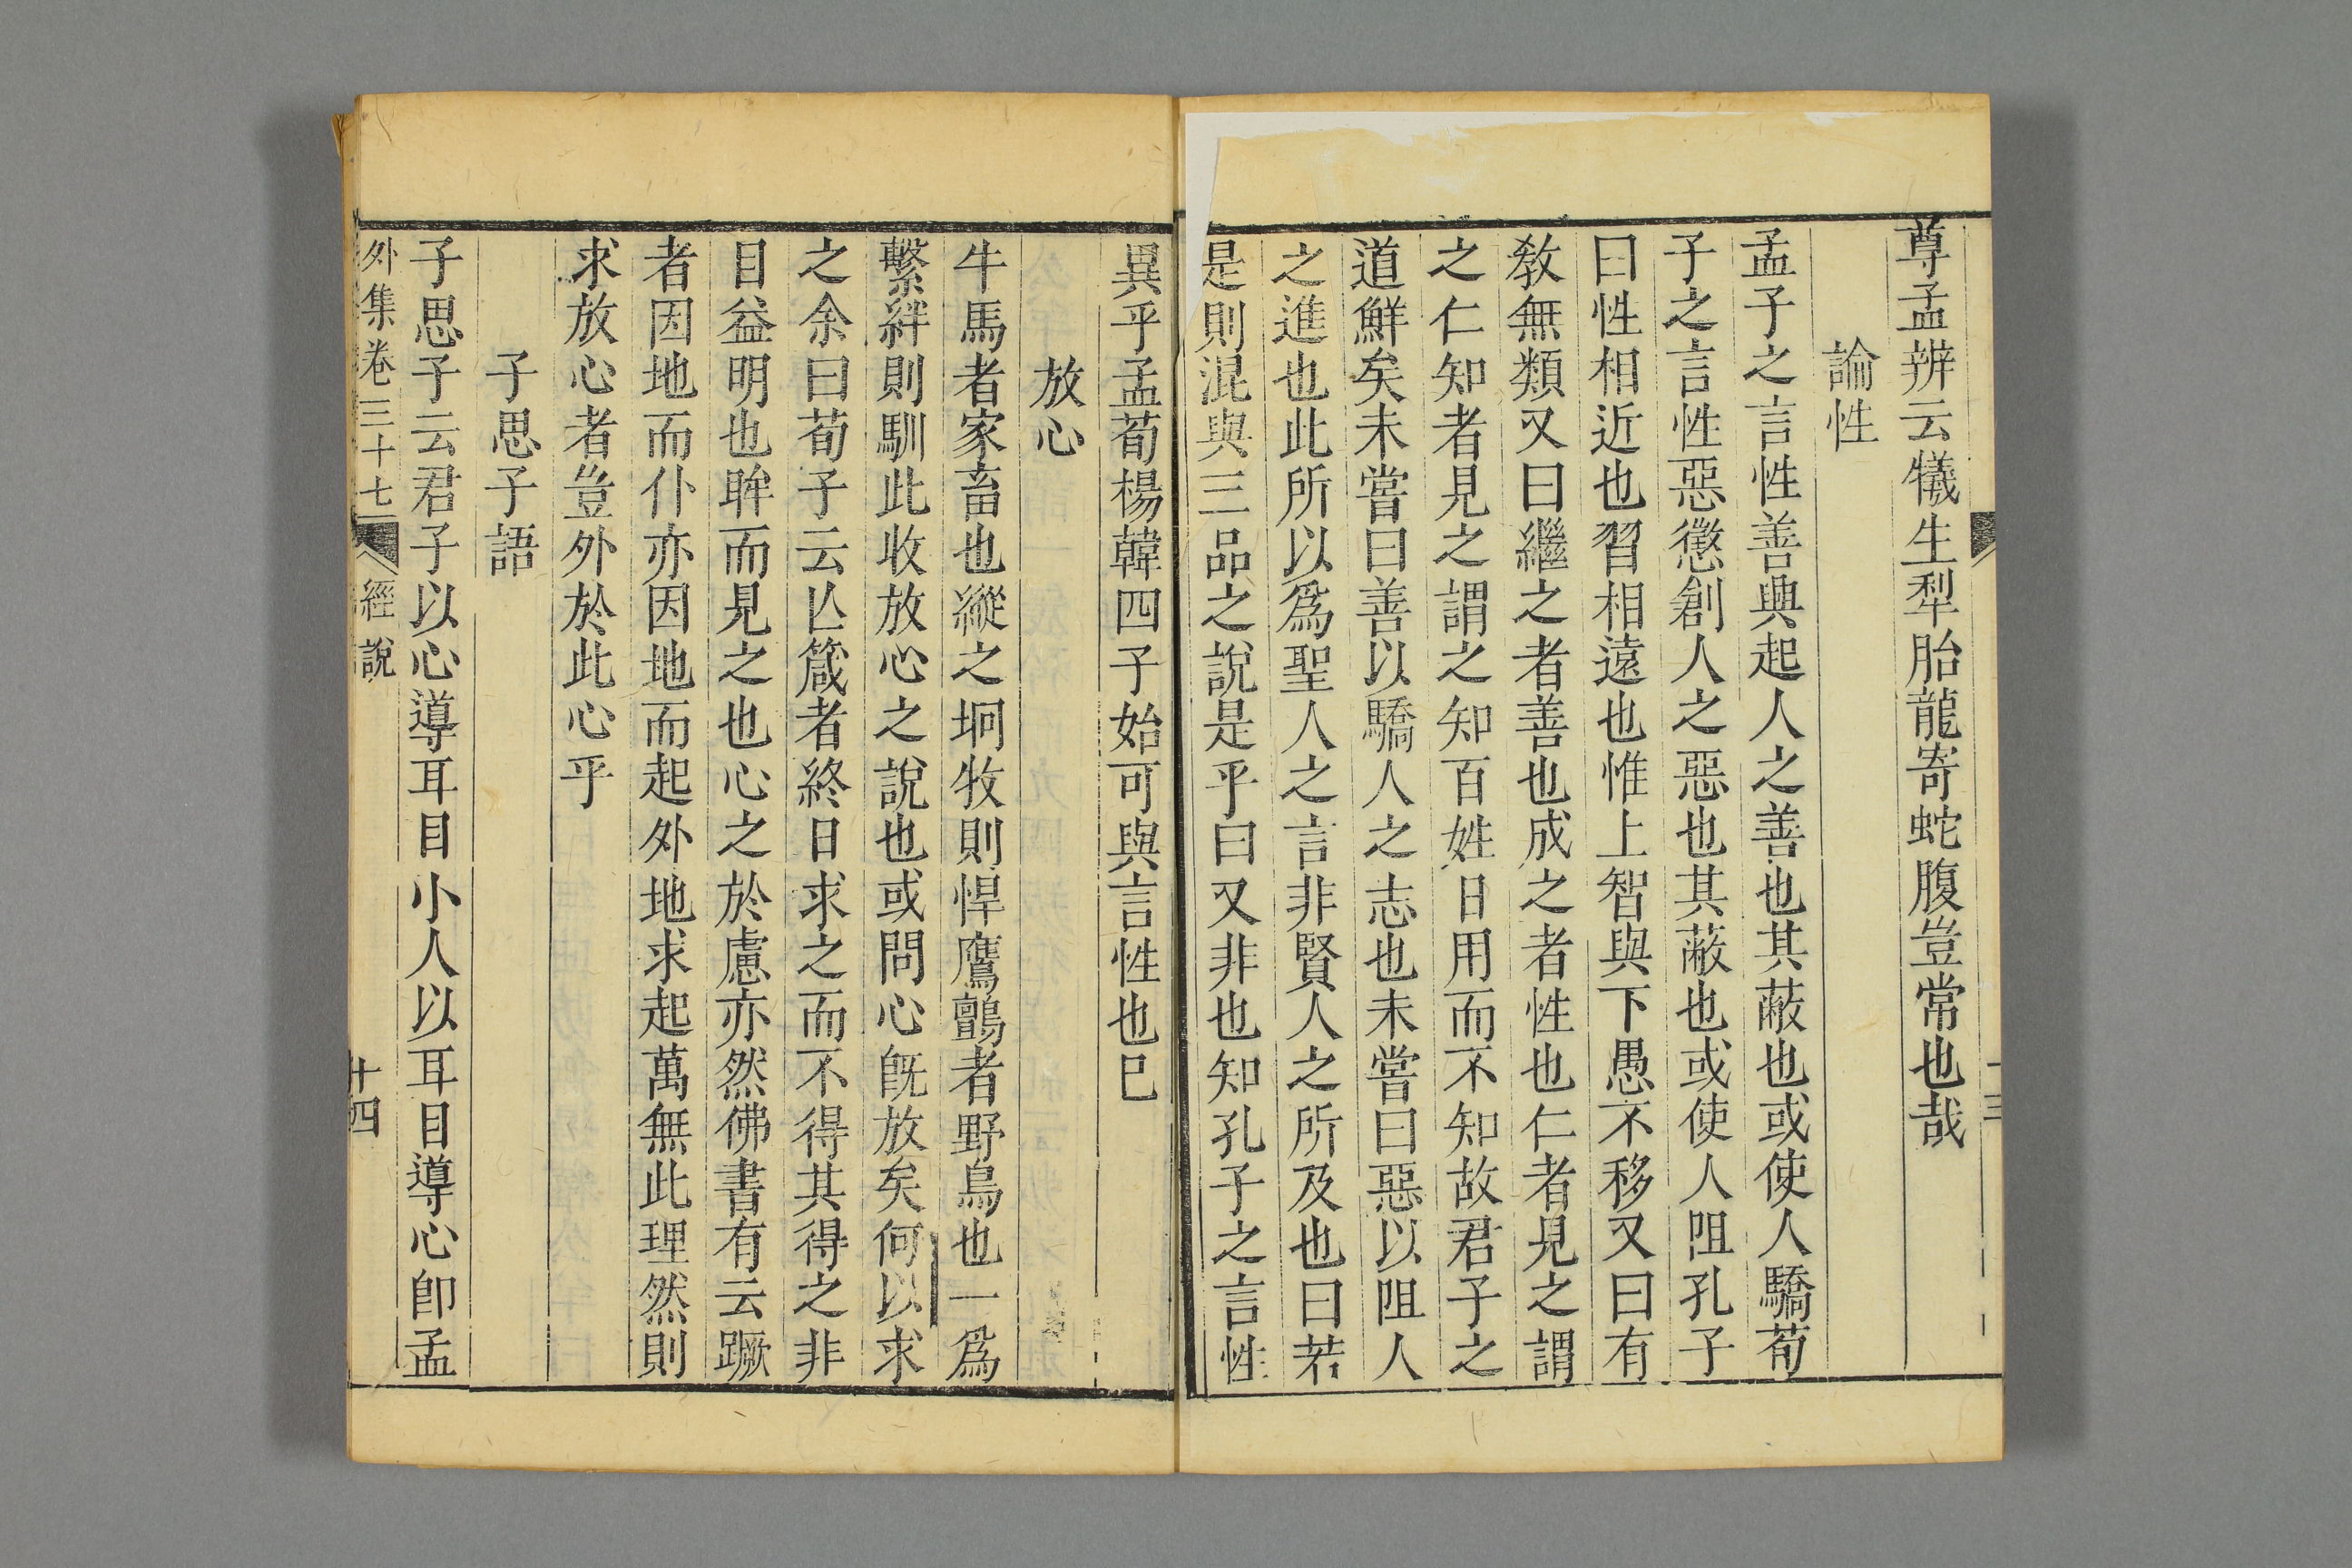 尊孟辨云犧生犁胎龍寄蛇腹豈常也哉
論性
孟子之言性善興起人之善也其蔽也或使人驕荀
子之言性惡懲創人之惡也其蔽也或使人阻孔子
曰性相近也習相遠也惟上智與下愚不移又曰有
敎無類又曰繼之者善也成之者性也仁者見之謂
之仁知者見之謂之知百姓日用而不知故君子之
道鮮矣未嘗曰善以驕人之志也未嘗曰惡以阻人
之進也此所以爲聖人之言非賢人之所及也曰若
是則混與三品之說是乎曰又非也知孔子之言性
異乎孟荀楊韓四子始可與言性也巳
放心
牛馬者家畜也縱之坰牧則悍鷹鸇者野鳥也一爲
繫絆則馴此收放心之說也或問心旣放矣何以求
之余曰荀子云亾箴者終日求之而不得其得之非
目益明也眸而見之也心之於慮亦然佛書有云蹶
者因地而仆亦因地而起外地求起萬無此理然則
求放心者豈外於此心乎
子思子語
子思子云君子以心導耳目小人以耳目導心卽孟
外集卷三十七 經說 十四